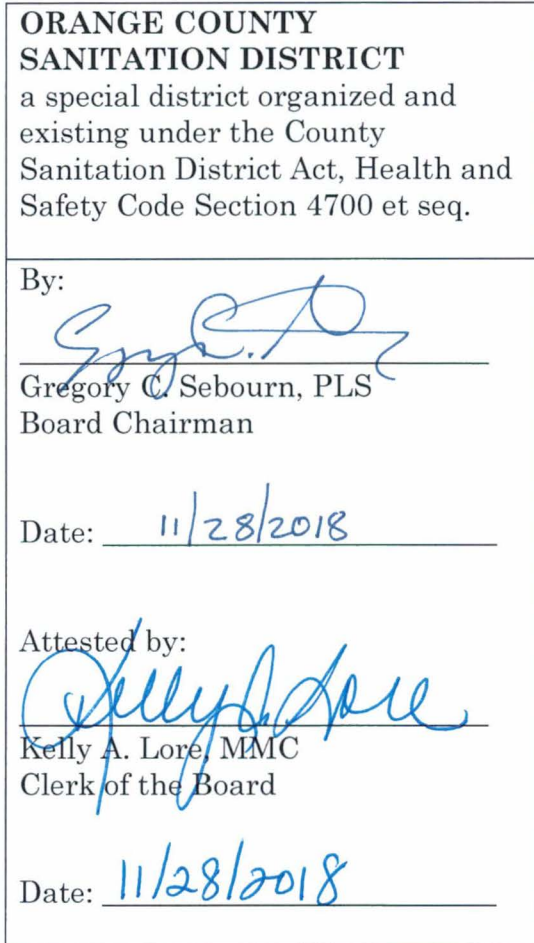 ORANGE COUNTY
SANITATION DISTRICT
a special district organized and
existing under the County
Sanitation District Act, Health and
Safety Code Section 4700 et seq.
By:
Gregory C. Sebourn, PLS
Board Chairman
Date: 11/28/2018
Attested by:
Kelly A. Lore
Kelly A. Lore, MMC
Clerk of the Board
Date: 11/28/2018